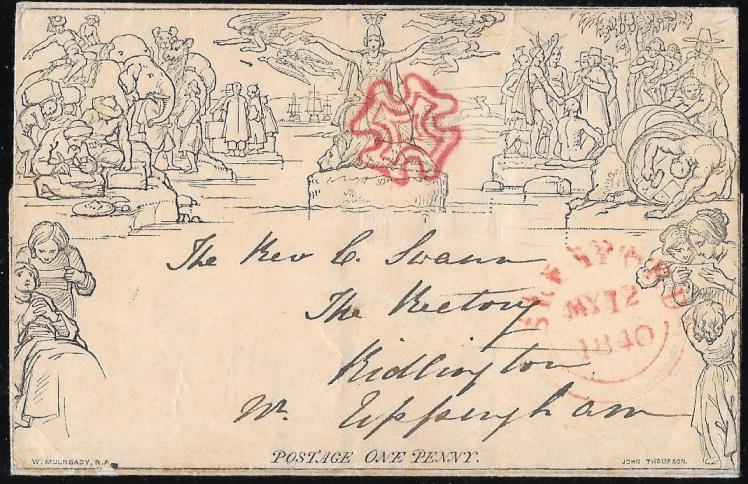 The Rev C. Swann
The Rectory
Ridlington
Nr. Uppingham
MY 12
1840
POSTAGE ONE PENNY.
W. MULREADY, R.A.
JOHN THOMPSON.